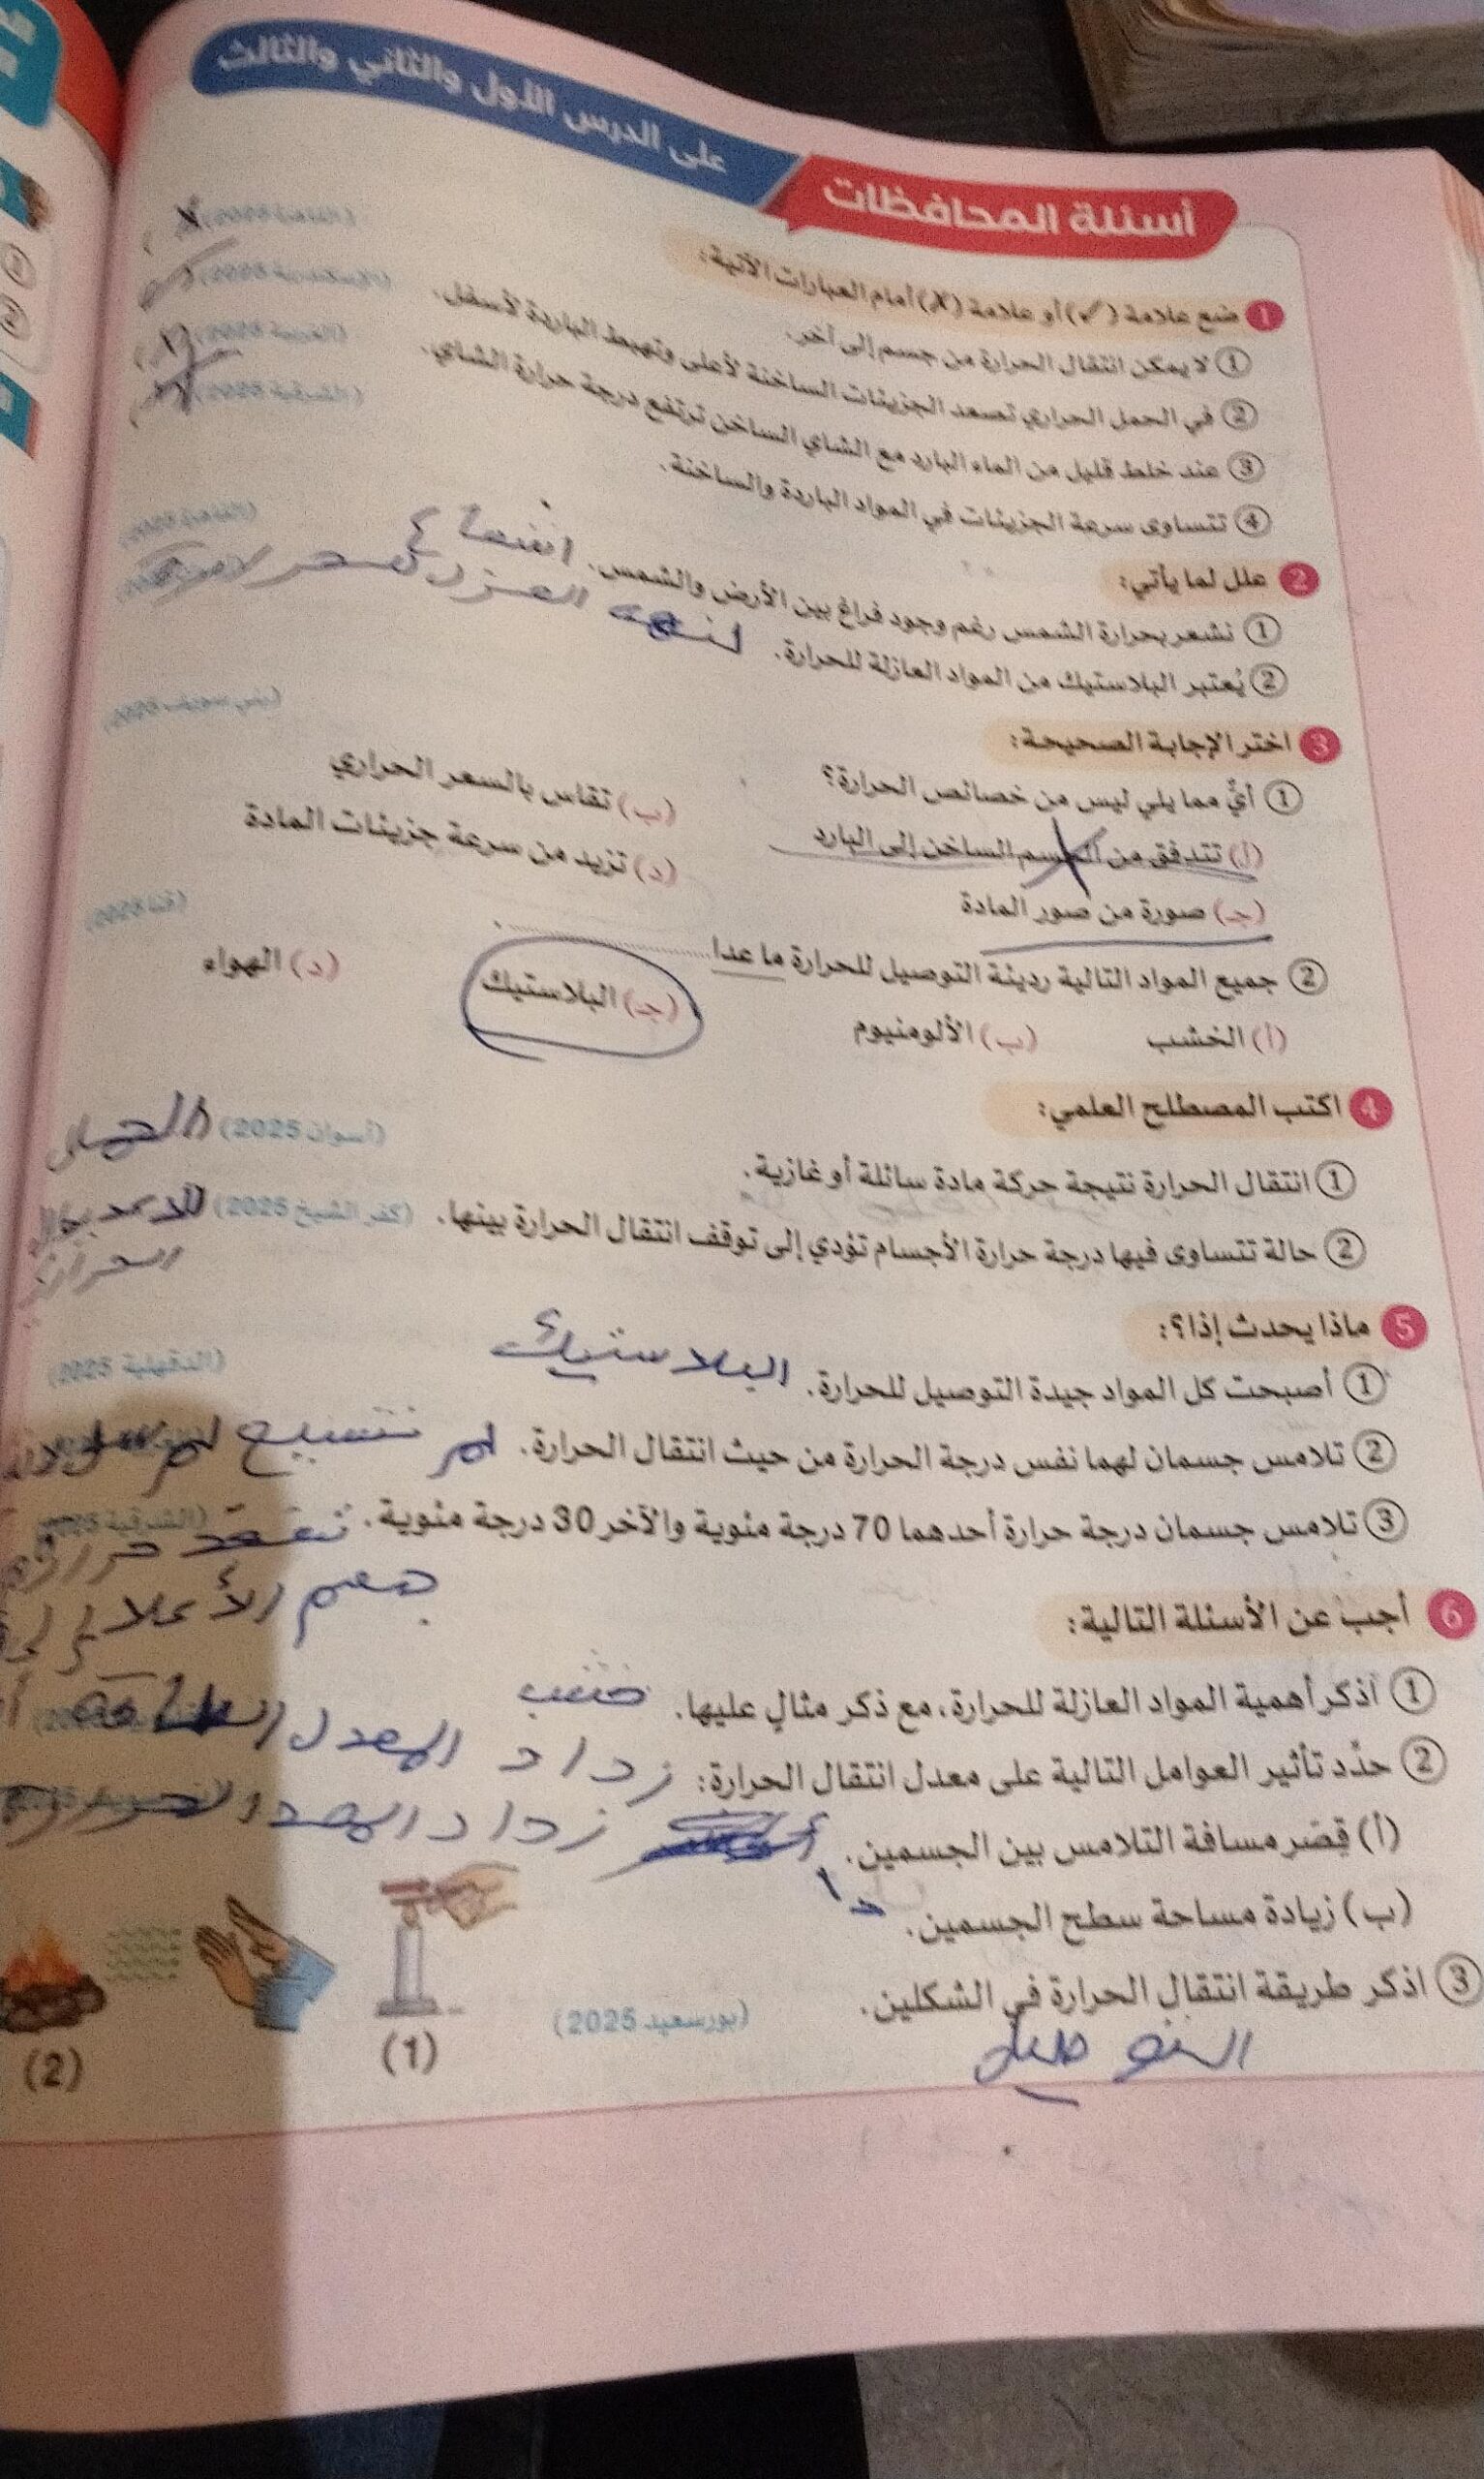 على الدرس الأول والثاني والثالث
أسئلة المحافظات
1 ضع علامة (✓) أو علامة (✗) أمام العبارات الآتية:
① لا يمكن انتقال الحرارة من جسم إلى آخر. (القاهرة 2025) ✗
② في الحمل الحراري تصعد الجزيئات الساخنة لأعلى وتهبط الباردة لأسفل. (الإسكندرية 2025)
③ عند خلط قليل من الماء البارد مع الشاي الساخن ترتفع درجة حرارة الشاي. (الغربية 2025)
④ تتساوى سرعة الجزيئات في المواد الباردة والساخنة. (الشرقية 2025)
2 علل لما يأتي:
① نشعر بحرارة الشمس رغم وجود فراغ بين الأرض والشمس. (القاهرة 2025)
② يُعتبر البلاستيك من المواد العازلة للحرارة.
3 اختر الإجابة الصحيحة:
① أيٌّ مما يلي ليس من خصائص الحرارة؟ (بني سويف 2025)
(أ) تتدفق من الجسم الساخن إلى البارد (ب) تقاس بالسعر الحراري
(جـ) صورة من صور المادة (د) تزيد من سرعة جزيئات المادة
② جميع المواد التالية رديئة التوصيل للحرارة ما عدا .................... (قنا 2025)
(أ) الخشب (ب) الألومنيوم (جـ) البلاستيك (د) الهواء
4 اكتب المصطلح العلمي:
① انتقال الحرارة نتيجة حركة مادة سائلة أو غازية. (أسوان 2025) الحمل
② حالة تتساوى فيها درجة حرارة الأجسام تؤدي إلى توقف انتقال الحرارة بينها. (كفر الشيخ 2025)
5 ماذا يحدث إذا؟:
① أصبحت كل المواد جيدة التوصيل للحرارة. (الدقهلية 2025) البلاستيك
② تلامس جسمان لهما نفس درجة الحرارة من حيث انتقال الحرارة. لم
③ تلامس جسمان درجة حرارة أحدهما 70 درجة مئوية والآخر 30 درجة مئوية. (الشرقية 2025)
6 أجب عن الأسئلة التالية:
① اذكر أهمية المواد العازلة للحرارة، مع ذكر مثال عليها. خشب
② حدِّد تأثير العوامل التالية على معدل انتقال الحرارة: زداد المعدل
(أ) قِصَر مسافة التلامس بين الجسمين. زداد المعدل
(ب) زيادة مساحة سطح الجسمين.
③ اذكر طريقة انتقال الحرارة في الشكلين. (بورسعيد 2025)
(1)
(2)
التوصيل